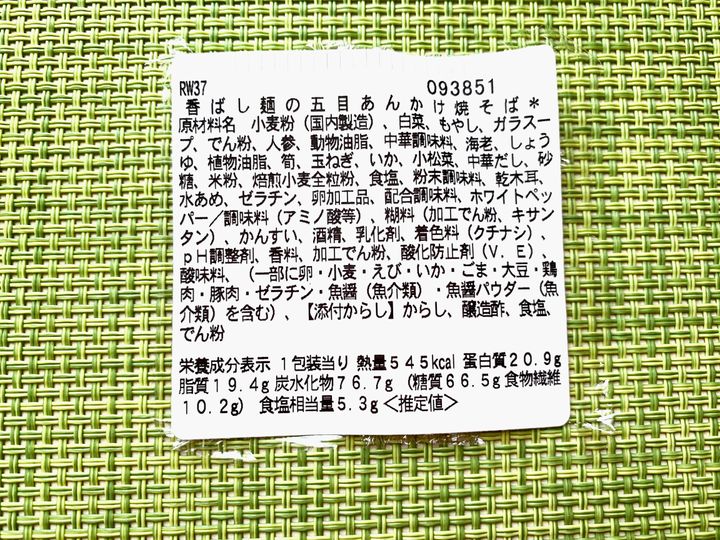 RW37 093851
香ばし麺の五目あんかけ焼そば*
原材料名 小麦粉（国内製造）、白菜、もやし、ガラスー
プ、でん粉、人参、動物油脂、中華調味料、海老、しょう
ゆ、植物油脂、筍、玉ねぎ、いか、小松菜、中華だし、砂
糖、米粉、焙煎小麦全粒粉、食塩、粉末調味料、乾木耳、
水あめ、ゼラチン、卵加工品、配合調味料、ホワイトペッ
パー／調味料（アミノ酸等）、糊料（加工でん粉、キサン
タン）、かんすい、酒精、乳化剤、着色料（クチナシ）、
ｐＨ調整剤、香料、加工でん粉、酸化防止剤（Ｖ．Ｅ）、
酸味料、（一部に卵・小麦・えび・いか・ごま・大豆・鶏
肉・豚肉・ゼラチン・魚醤（魚介類）・魚醤パウダー（魚
介類）を含む）、【添付からし】からし、醸造酢、食塩、
でん粉
栄養成分表示 １包装当り 熱量５４５kcal 蛋白質２０.９g
脂質１９.４g 炭水化物７６.７g （糖質６６.５g 食物繊維
１０.２g） 食塩相当量５.３g＜推定値＞